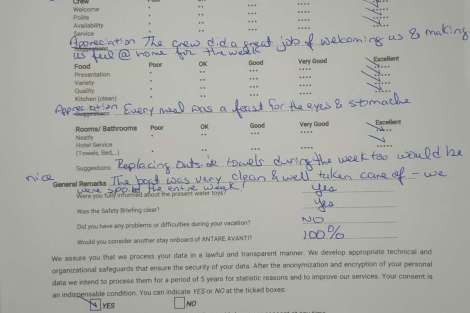 Crew
Welcome
Polite
Availability
Service
Appreciation The crew did a great job of welcoming us & making
us feel @ home for the week
Food Poor OK Good Very Good Excellent
Presentation
Variety
Quality
Kitchen (clean)
Appreciation Every meal was a feast for the eyes & stomache
Suggestions
Rooms/ Bathrooms Poor OK Good Very Good Excellent
Neatly
Hotel Service
(Towels, Bed,..)
Suggestions Replacing outside towels during the week too would be
nice
General Remarks The boat was very clean & well taken care of - we
were spoiled the entire week!
Were you fully informed about the present water toys? Yes
Was the Safety Briefing clear? Yes
Did you have any problems or difficulties during your vacation? NO
Would you consider another stay onboard of ANTARE AVANTI? 100%
We assure you that we process your data in a lawful and transparent manner. We develop appropriate technical and
organizational safeguards that ensure the security of your data. After the anonymization and encryption of your personal
data we intend to process them for a period of 5 years for statistic reasons and to improve our services. Your consent is
an indispensable condition. You can indicate YES or NO at the ticked boxes:
YES NO